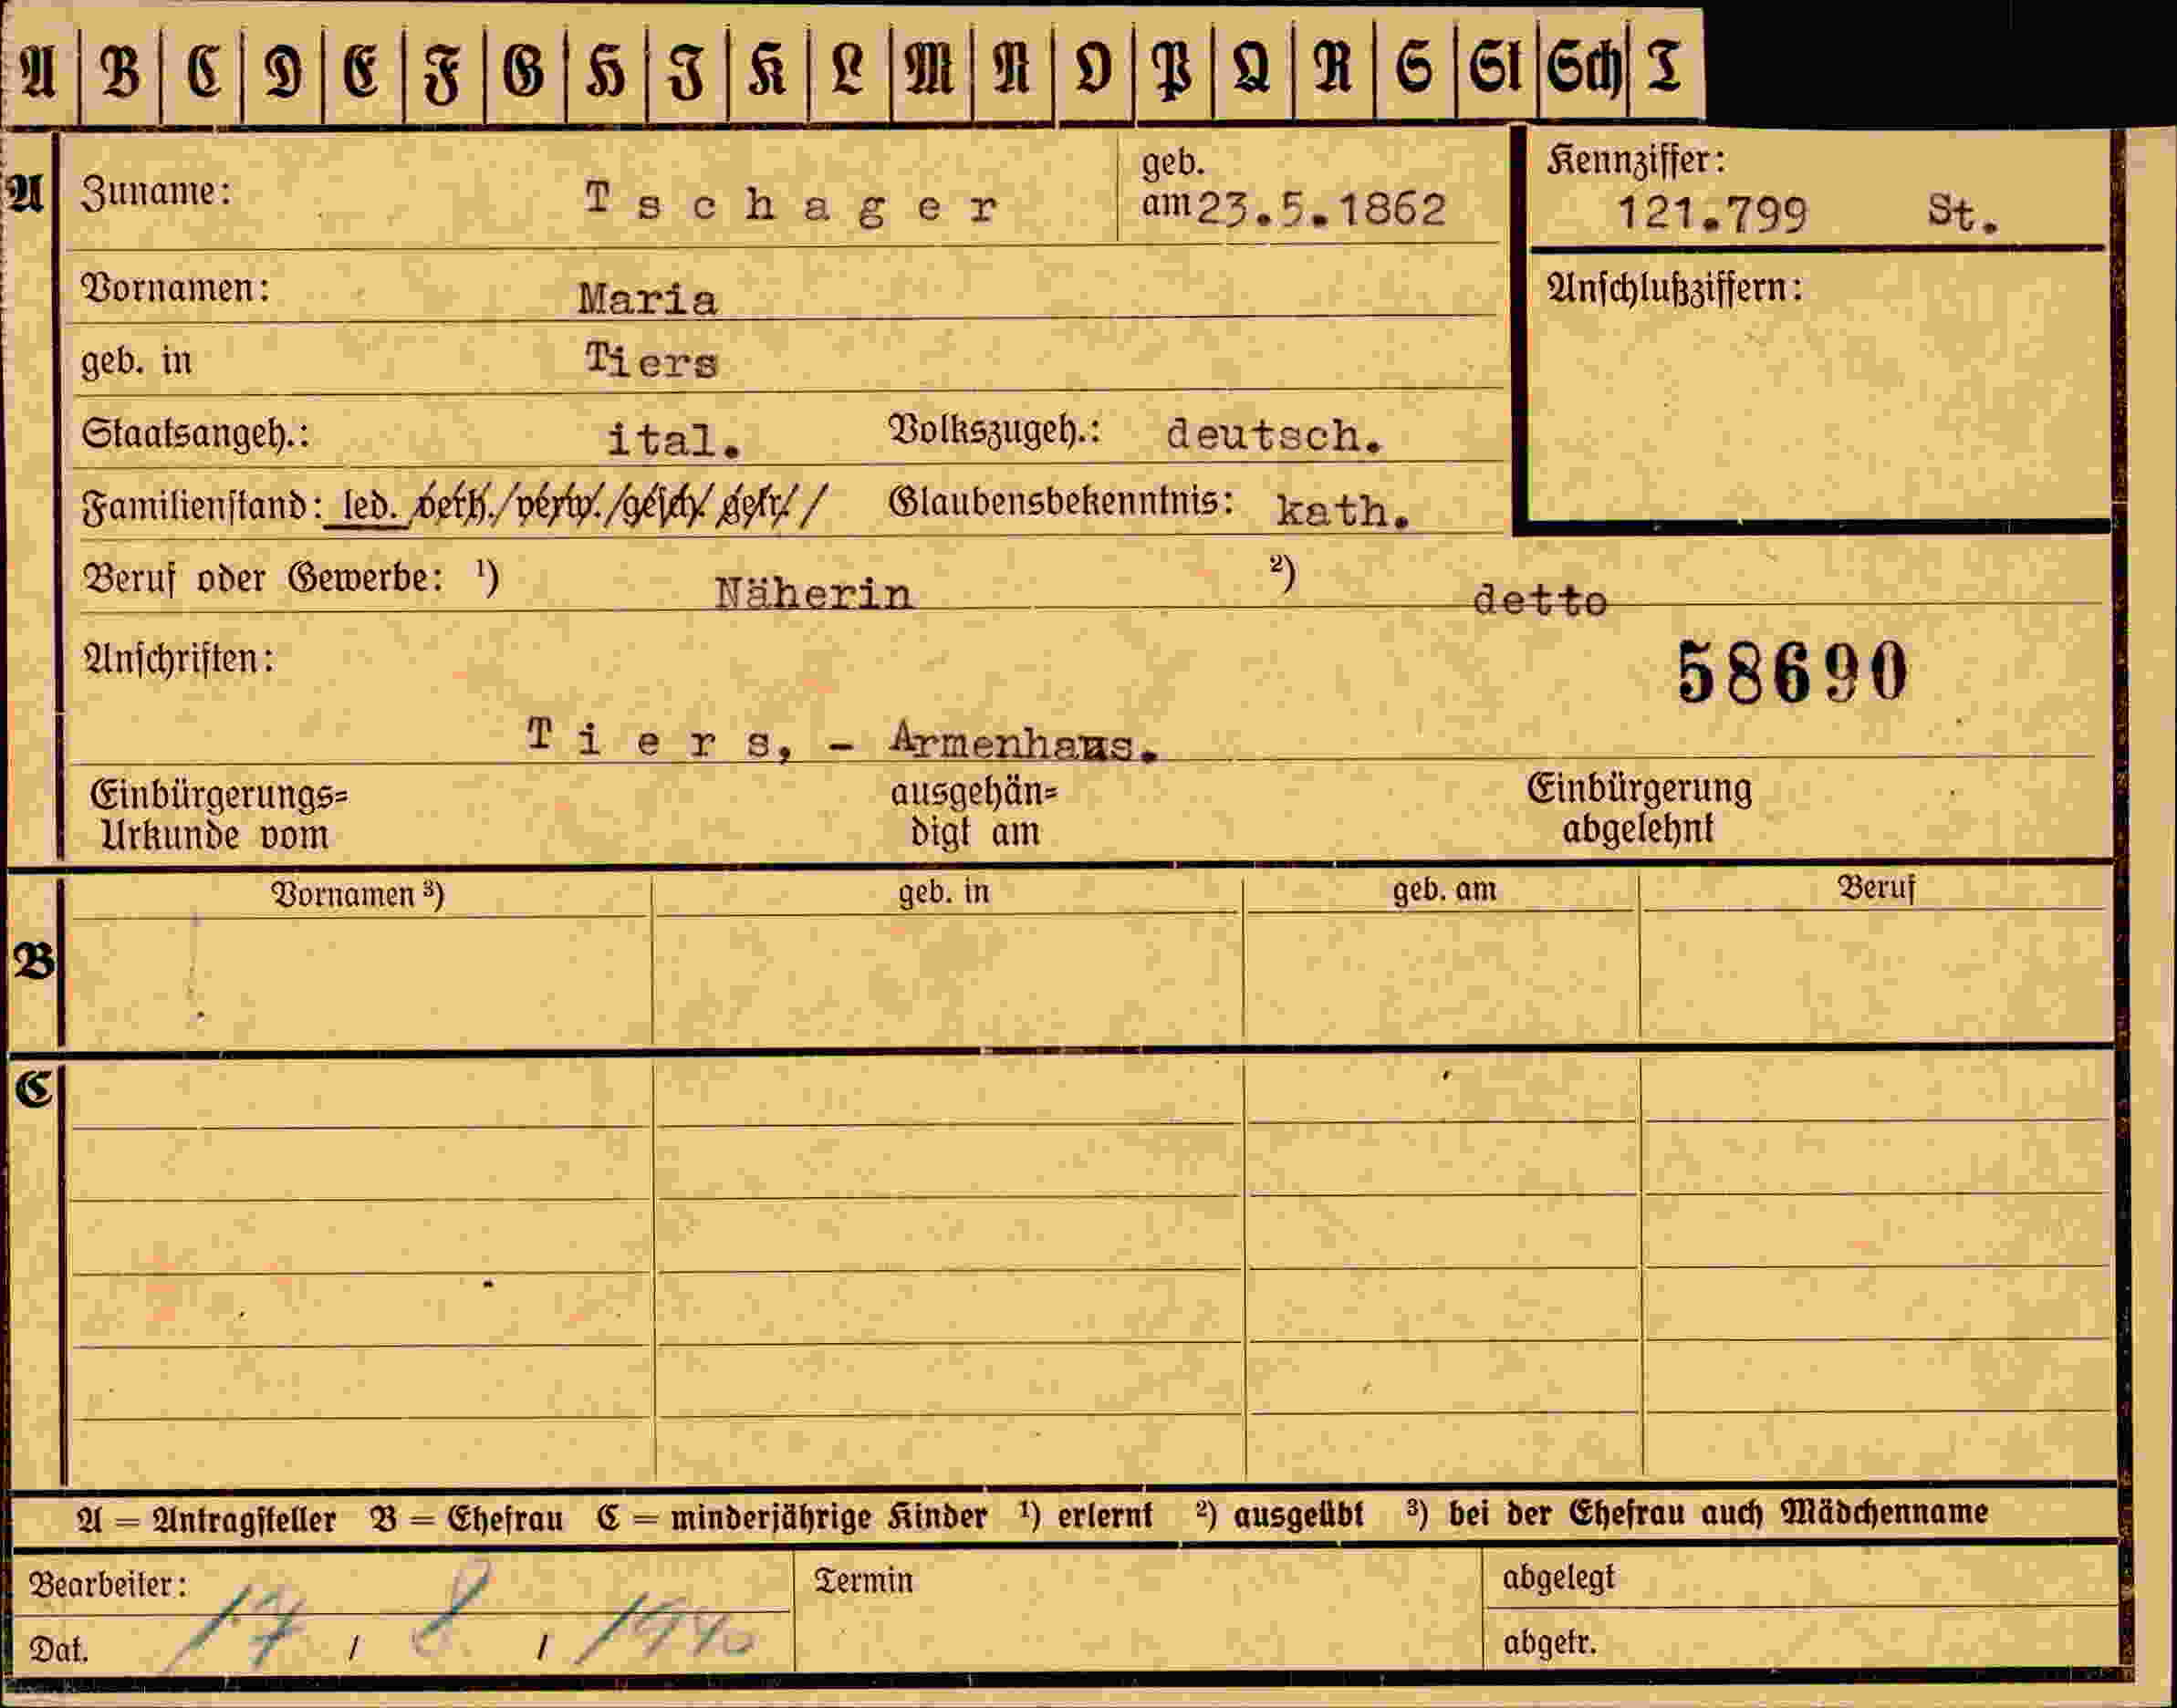 A B C D E F G H J K L M N O P Q R S St Sch T
A Zuname: Tschager geb. am 23.5.1862 Kennziffer: 121.799 St.
Vornamen: Maria Anschlußziffern:
geb. in Tiers
Staatsangeh.: ital. Volkszugeh.: deutsch.
Familienstand: led. verh./verw./gesch./getr./ Glaubensbekenntnis: kath.
Beruf oder Gewerbe: ¹) Näherin ²) detto
Anschriften: 58690
Tiers, - Armenhaus.
Einbürgerungs= ausgehän= Einbürgerung
Urkunde vom digt am abgelehnt
Vornamen ³) geb. in geb. am Beruf
B
C
A = Antragsteller B = Ehefrau C = minderjährige Kinder ¹) erlernt ²) ausgeübt ³) bei der Ehefrau auch Mädchenname
Bearbeiter: Termin abgelegt
Dat. 17 / 8 / 1940 abgetr.